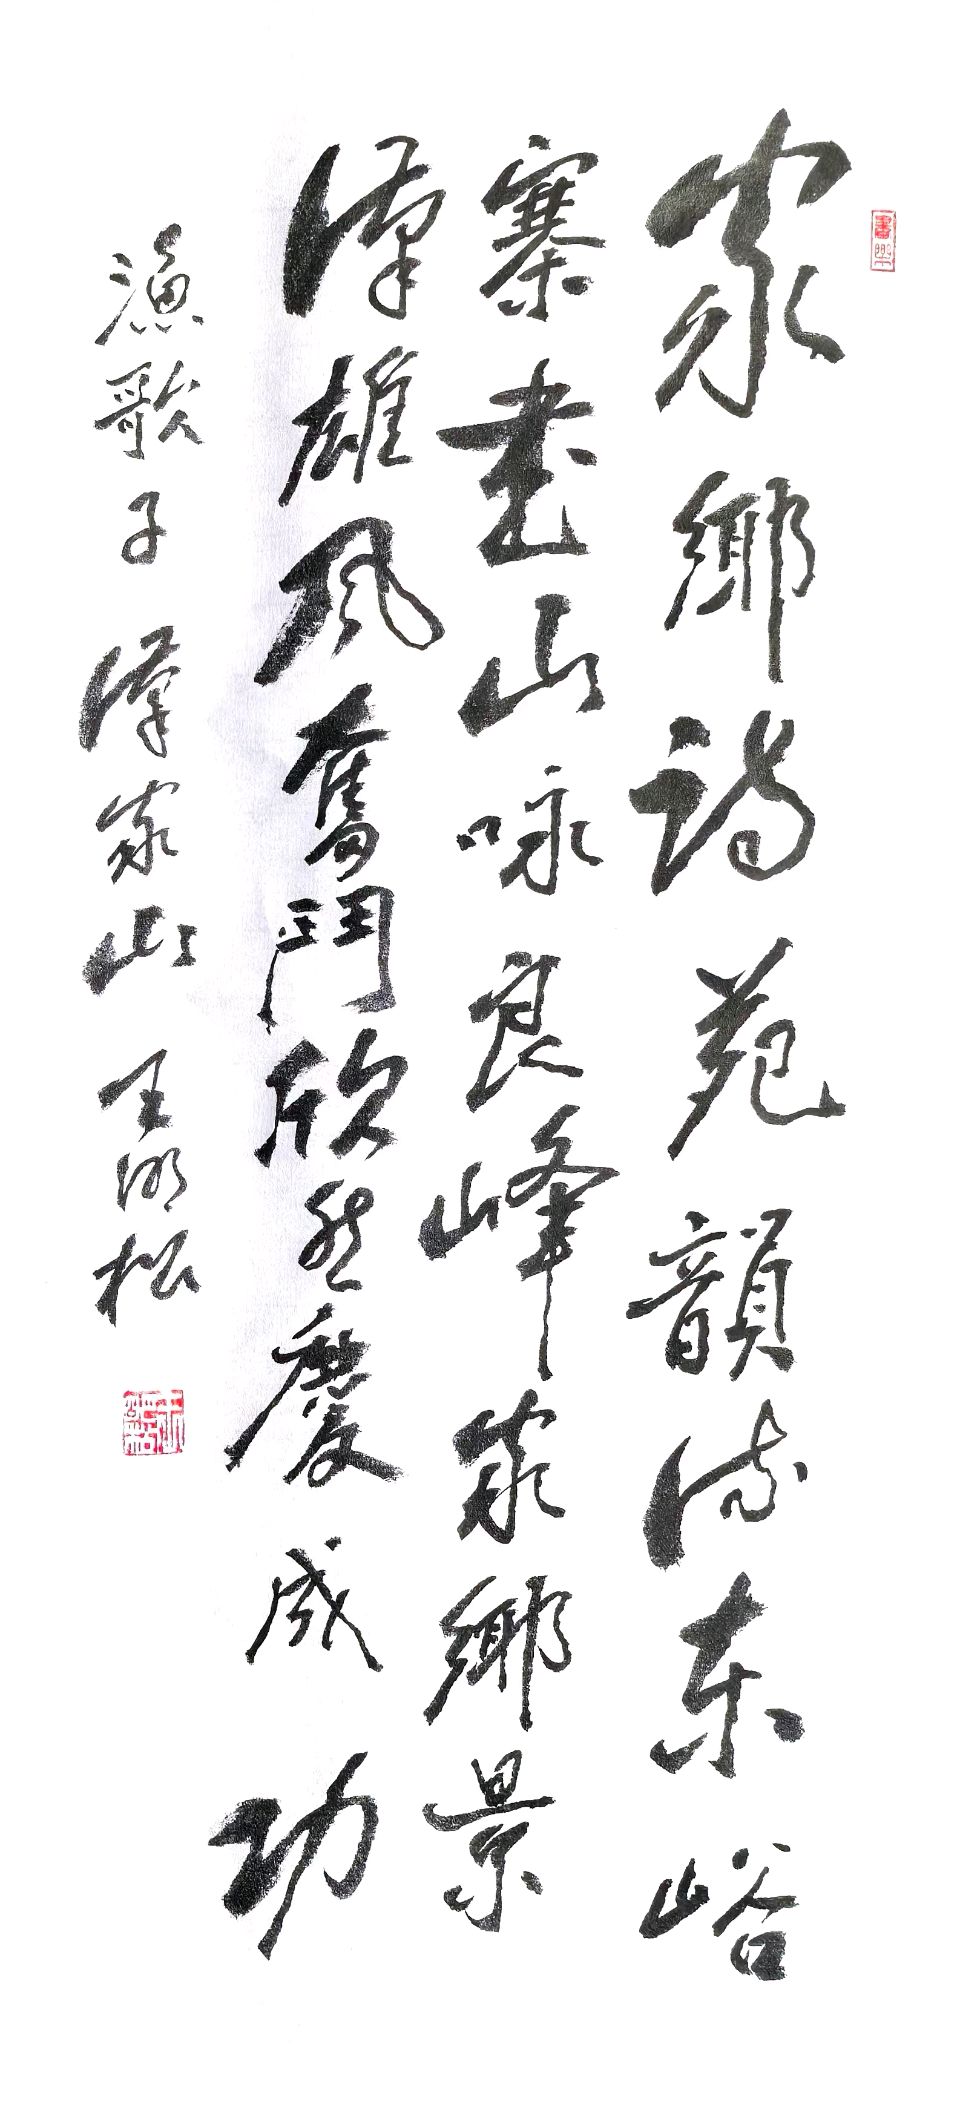 家鄉詩苑韻流東峪
寨書山咏良峰家鄉景
漢雄風奮鬥欣然慶成功
漁歌子 漢家山 王松